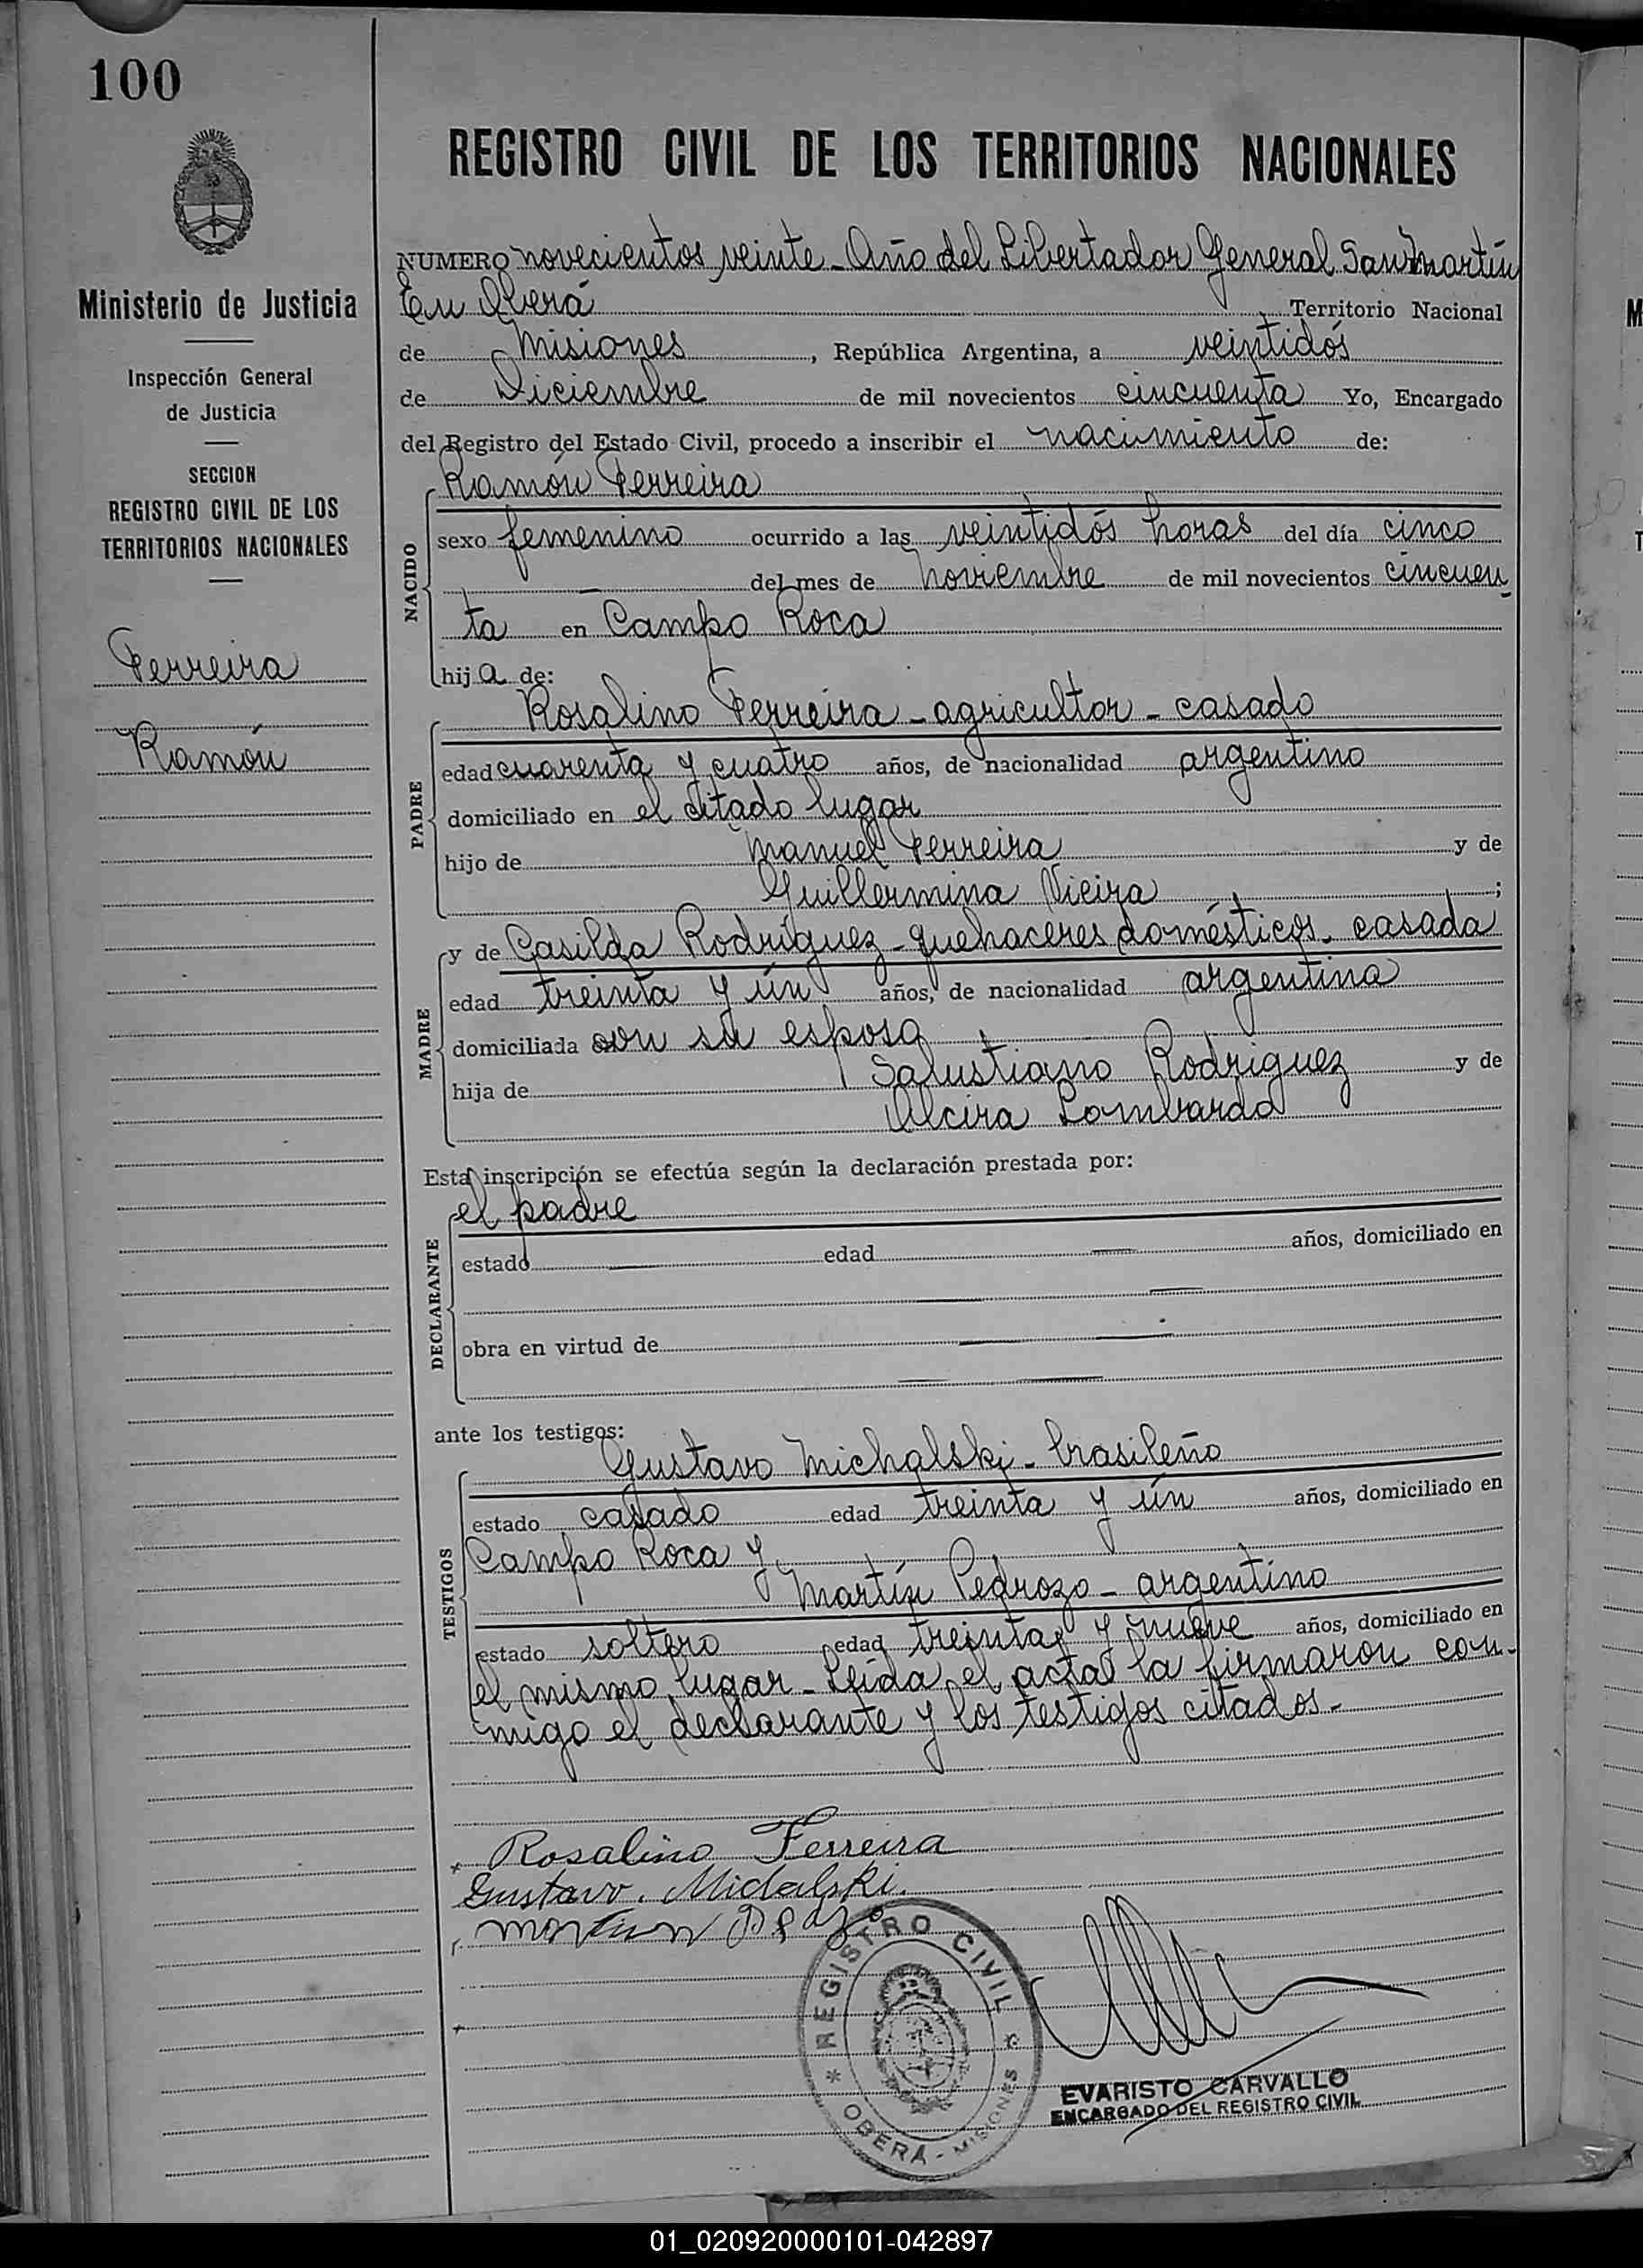 100
REGISTRO CIVIL DE LOS TERRITORIOS NACIONALES
Ministerio de Justicia
Inspección General
de Justicia
SECCION
REGISTRO CIVIL DE LOS
TERRITORIOS NACIONALES
Ferreira
Ramón
NUMERO novecientos veinte - Año del Libertador General San Martín
En Oberá Territorio Nacional
de Misiones, República Argentina, a veintidós
de Diciembre de mil novecientos cincuenta Yo, Encargado
del Registro del Estado Civil, procedo a inscribir el nacimiento de:
Ramón Ferreira
NACIDO
sexo femenino ocurrido a las veintidós horas del día cinco
del mes de noviembre de mil novecientos cincuen
ta en Campo Roca
hija de:
Rosalino Ferreira - agricultor - casado
PADRE
edad cuarenta y cuatro años, de nacionalidad argentino
domiciliado en el citado lugar
hijo de Manuel Ferreira y de
Guillermina Vieira ;
y de Casilda Rodríguez - quehaceres domésticos. casada
MADRE
edad treinta y ún años, de nacionalidad argentina
domiciliada con su esposa
hija de Salustiano Rodriguez y de
Alcira Lombarda
Esta inscripción se efectúa según la declaración prestada por:
el padre
DECLARANTE
estado edad años, domiciliado en
obra en virtud de
ante los testigos:
Gustavo Michalski - brasileño
TESTIGOS
estado casado edad treinta y ún años, domiciliado en
Campo Roca y
Martín Pedrozo - argentino
estado soltero edad treinta y nueve años, domiciliado en
el mismo lugar - Leída el acta la firmaron con-
migo el declarante y los testigos citados.-
Rosalino Ferreira
Gustavo. Midalski.
REGISTRO CIVIL
OBERÁ - MISIONES
EVARISTO CARVALLO
ENCARGADO DEL REGISTRO CIVIL
01_020920000101-042897